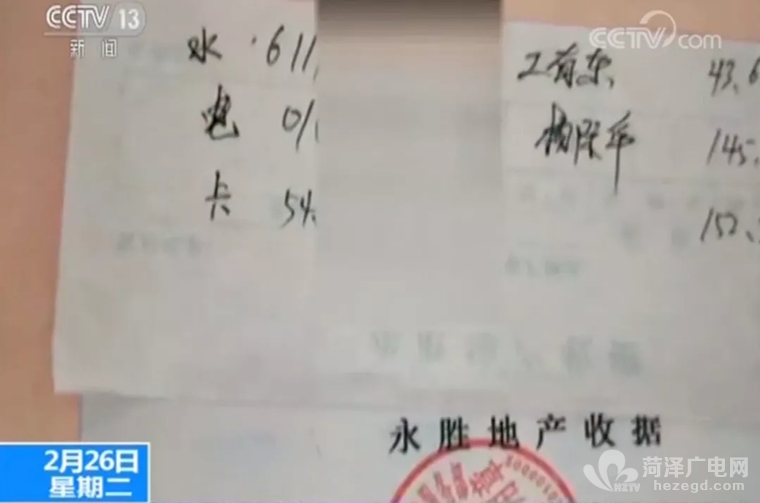 CCTV 13
新闻
CCTV.com
水·611
工有东 43.6
电 01
杨际年 145.
卡 54.
152.
永胜地产收据
2月26日
星期二
菏泽广电网
HZTV
www.hezegd.com